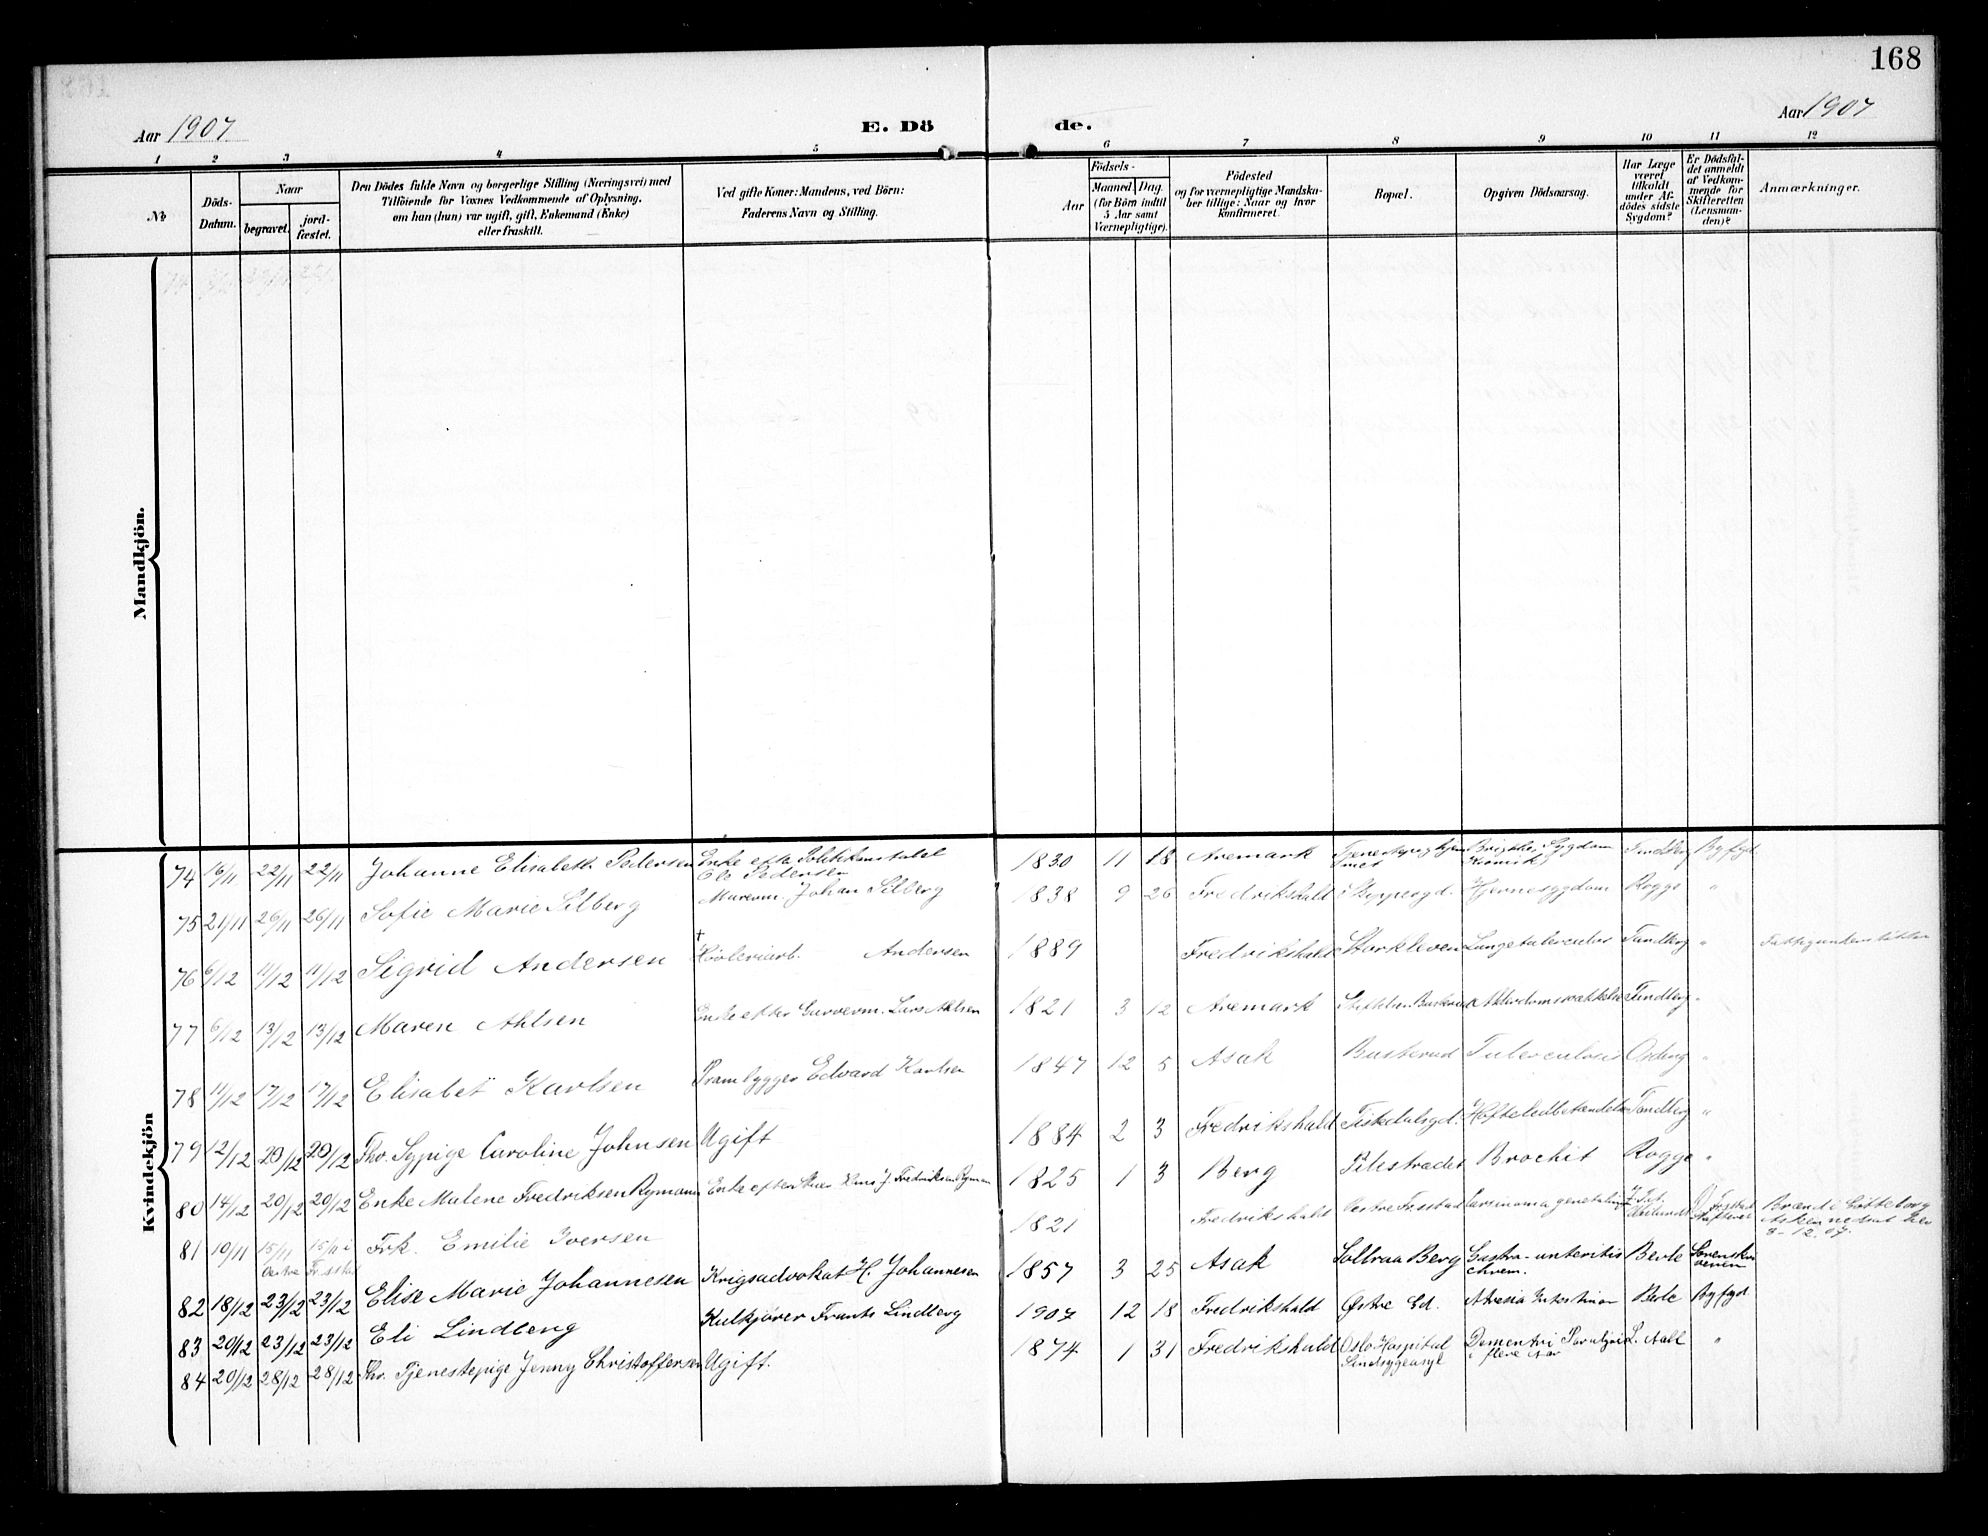 168
Aar 1907
E. Dö de.
Aar 1907
1 2 3 4 5 6 7 8 9 10 11 12
No
Döds-Datum.
Naar
begravet.
jord-fæstet.
Den Dödes fulde Navn og borgerlige Stilling (Næringsvei) med
Tilföiende for Voxnes Vedkommende af Oplysning,
om han (hun) var ugift, gift, Enkemand (Enke)
eller fraskilt.
Ved gifte Koner: Mandens, ved Börn:
Faderens Navn og Stilling.
Födsels-
Aar
Maaned Dag.
(for Börn indtil
5 Aar samt
Værnepligtige).
Födested
og for værnepligtige Mandska-
ber tillige: Naar og hvor
konfirmeret.
Bopæl.
Opgiven Dödsaarsag.
Har Læge
været
tilkaldt
under Af-
dödes sidste
Sygdom?
Er Dödsfal-
det anmeldt
af Vedkom-
mende for
Skifteretten
(Lensman-
den)?
Anmærkninger.
Mandkjön.
Kvindekjön
74 16/11 22/11 22/11 Johanne Elisabeth Pedersen Enke efter Politikonstabel Ole Pedersen 1830 11 18 Aremark Sygdom Tandberg Byfgd
75 21/11 26/11 26/11 Sofie Marie Silberg Murerm. Johan Silberg 1838 9 26 Fredrikshald Hjernesygdom Rogge "
76 6/12 11/12 11/12 Sigrid Andersen † Andersen 1889 Fredrikshald Lungetuberculos Tandberg "
77 6/12 13/12 13/12 Maren Ahlsen Enke efter Garverm. Lars Ahlsen 1821 3 12 Aremark Tandberg "
78 11/12 17/12 17/12 Elisabet Karlsen Prambygger Edvard Karlsen 1847 12 5 Asak Busterud Tuberculosis "
79 12/12 20/12 20/12 Fhv. Sypige Caroline Johnsen Ugift 1884 2 3 Fredrikshald Tistedalsgd. Hofteledbetændelse Tandberg "
80 14/12 20/12 20/12 Enke Malene Fredriksen Rymann Enke efter Hans J. Fredriksen Ryman 1825 1 3 Berg Pilestrædet Brochit Rogge "
81 10/11 15/11 15/11 i Vestre Fr.stad Frk. Emilie Iversen 1821 Fredrikshald Vestre Fr.stad Carsinoma genetalium Brændt i Göteborg
8-12.07.
82 18/12 23/12 23/12 Elise Marie Johannesen Krigsadvokat H. Johannesen 1857 3 25 Asak Solbraa Berg Gastro-enteritis chron. Berle
83 20/12 23/12 23/12 Eli Lindberg Kulkjører Frants Lindberg 1907 12 18 Fredrikshald Østre Ed. Atresia Berle Byfgd
84 20/12 28/12 28/12 Fhv. Tjenestepige Jenny Christoffersen Ugift. 1874 1 31 Fredrikshald Oslo Hospital Sindsygeasyl flere Aar L. Aall "